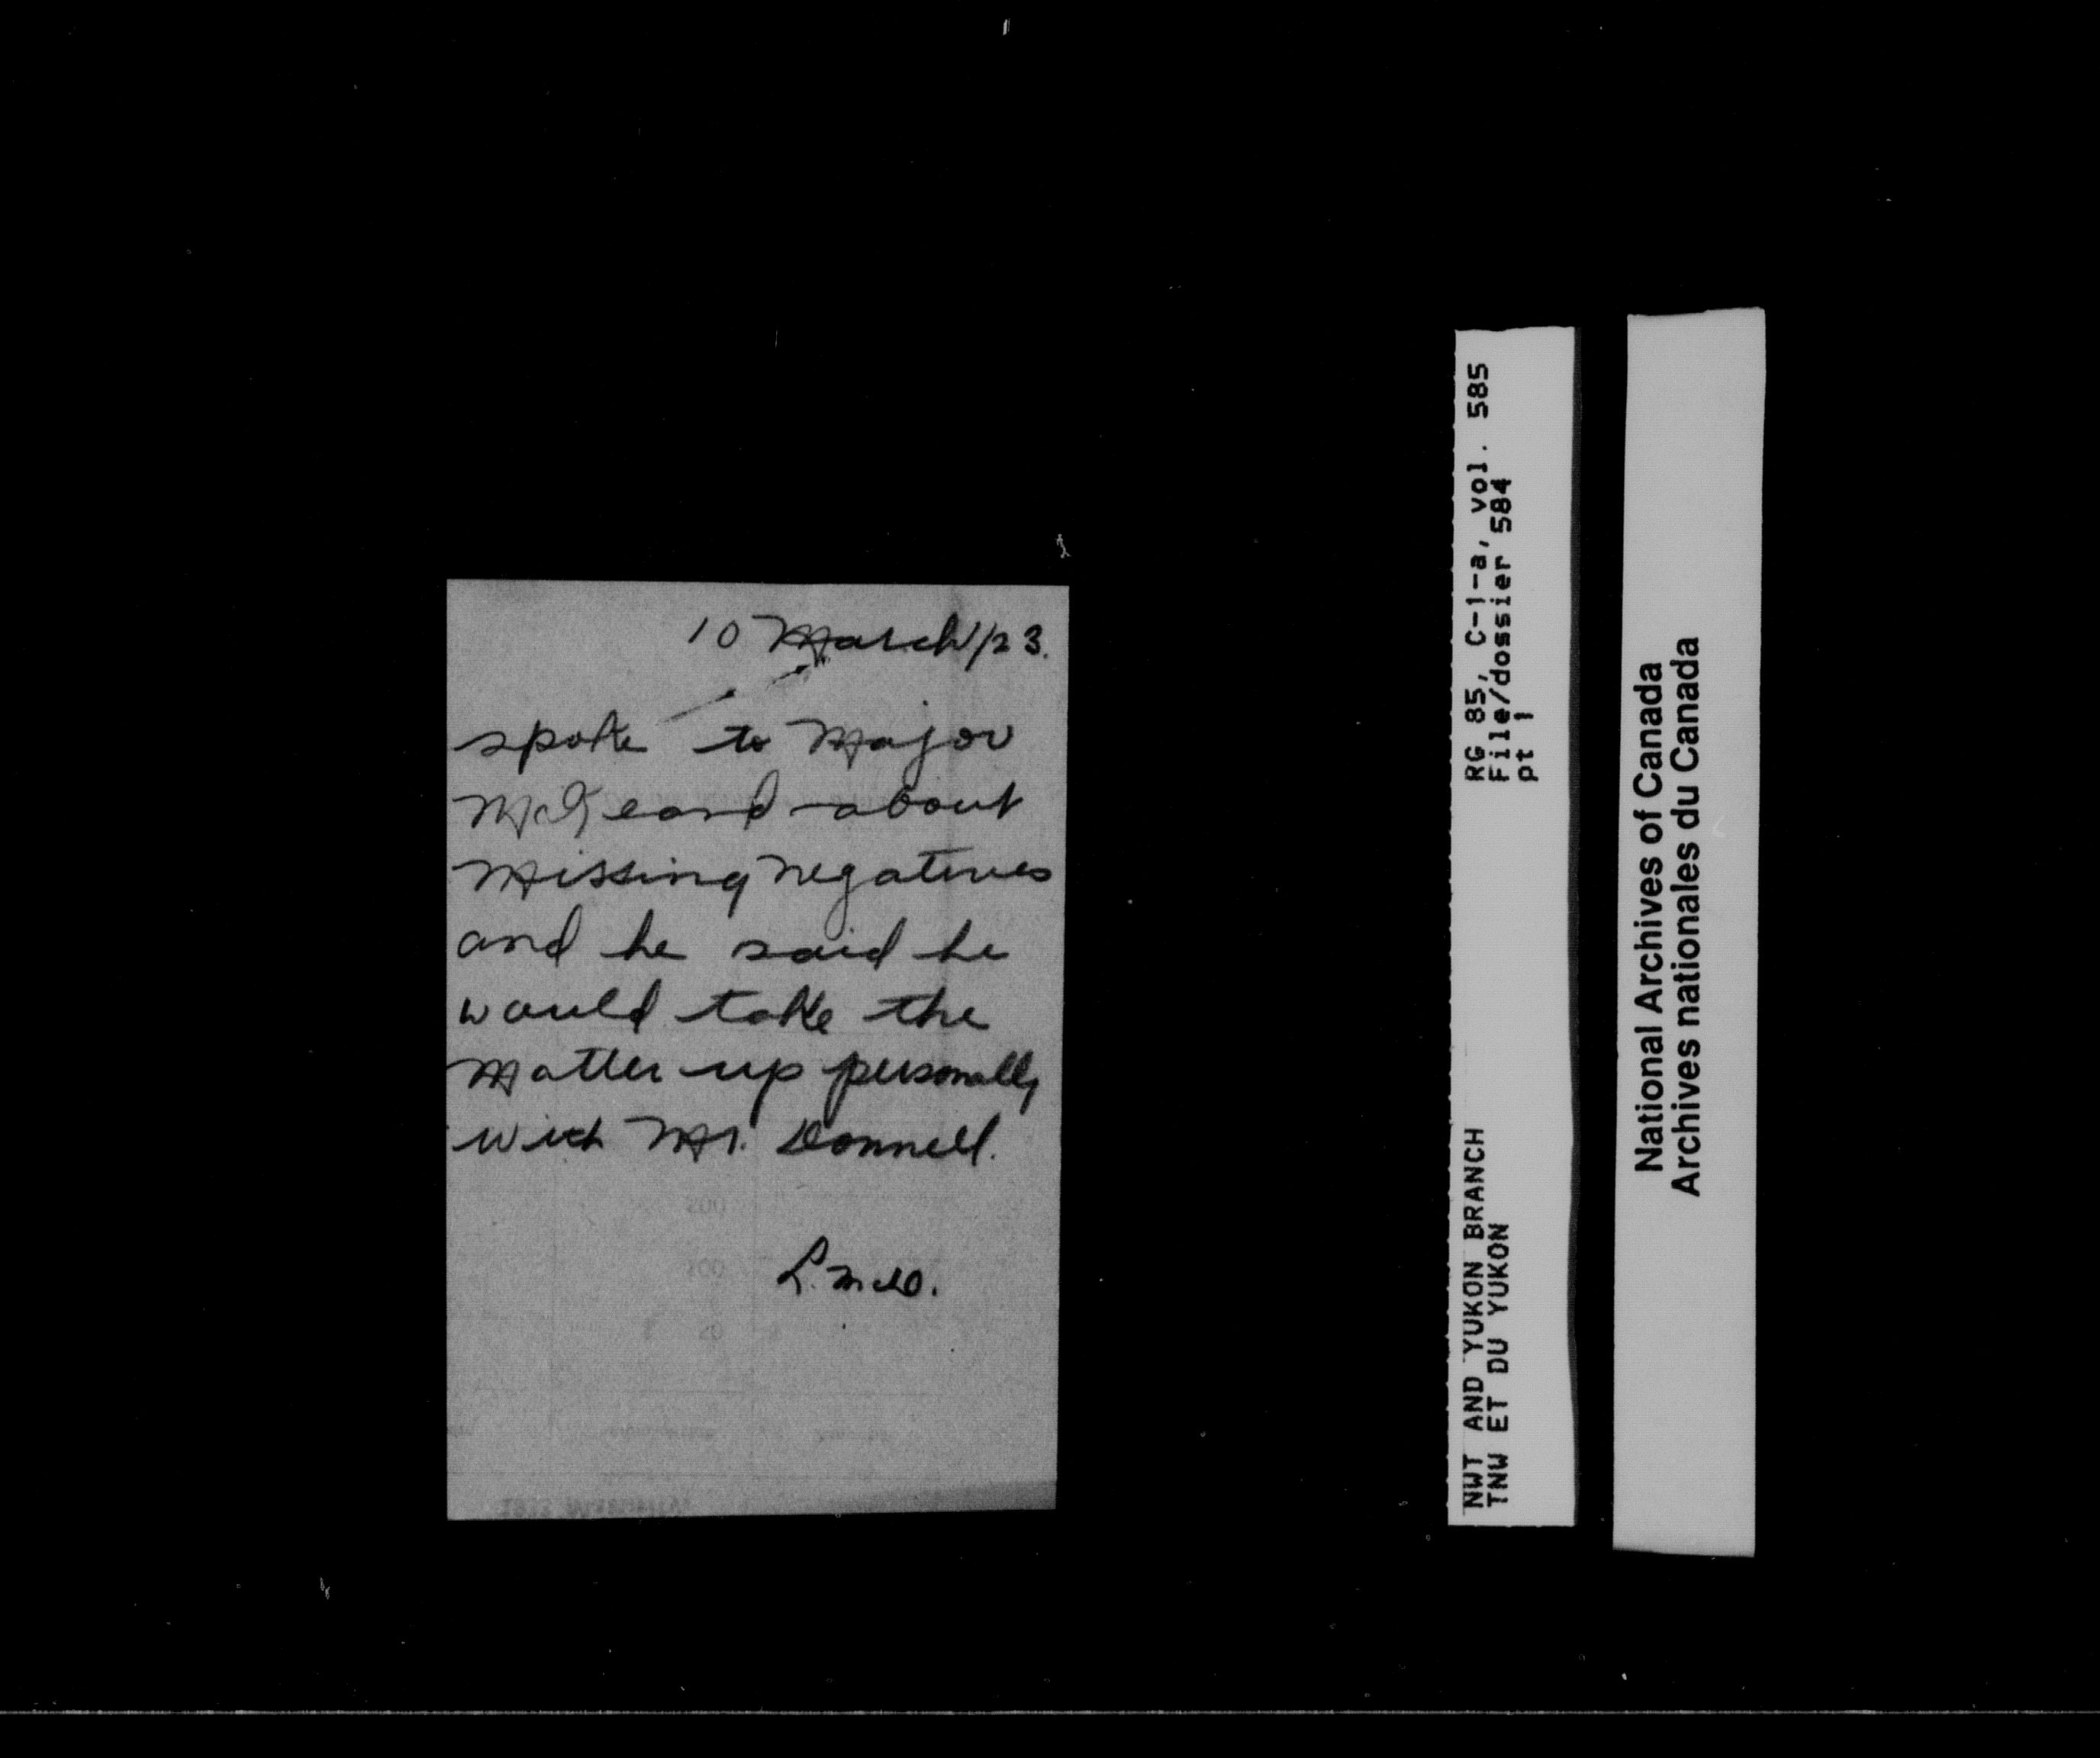 10 March/23.
spoke to Major
McKeand about
missing negatives
and he said he
would take the
matter up personally
with Mr. Donnell.
L. McD.
RG 85, C-1-a, vol. 585
File/dossier 584
pt 1
NWT AND YUKON BRANCH
TNW ET DU YUKON
National Archives of Canada
Archives nationales du Canada